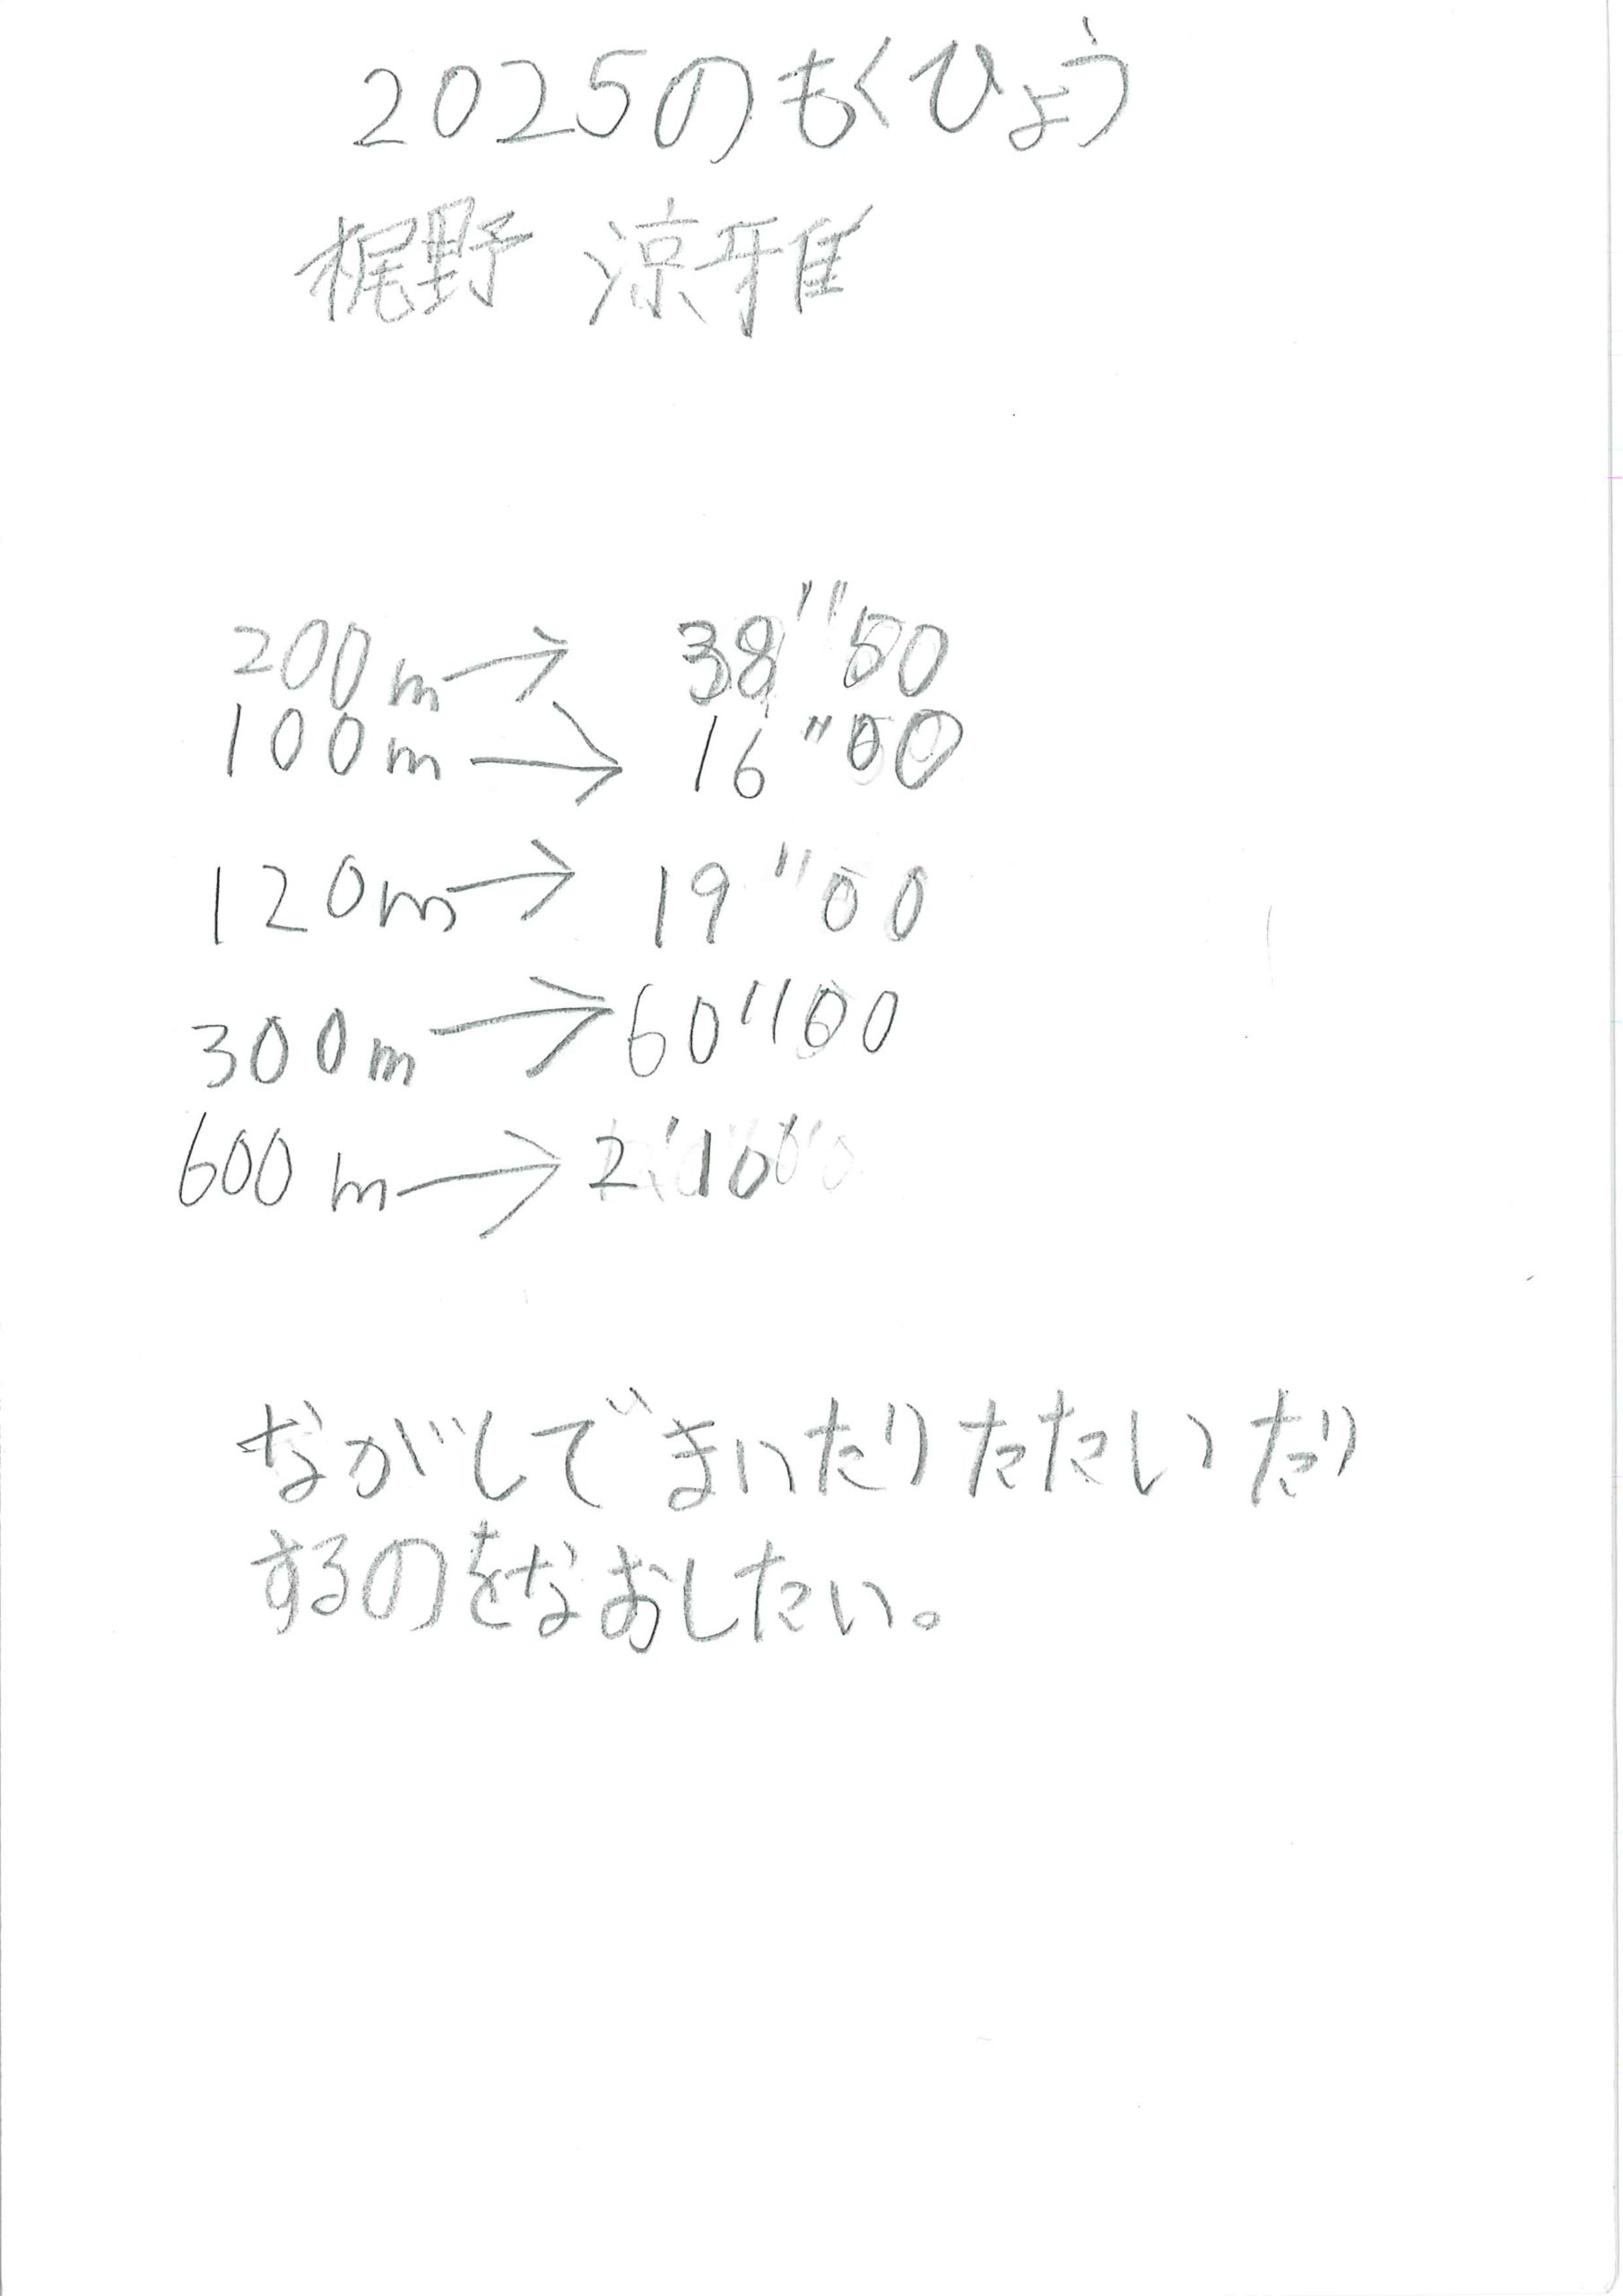 2025のもくひょう
梶野 涼雅
200m→ 38"50
100m→ 16"00
120m→ 19"00
300m→60"00
600m→2'10"
ながしでまいたりたたいだり
するのをなおしたい。